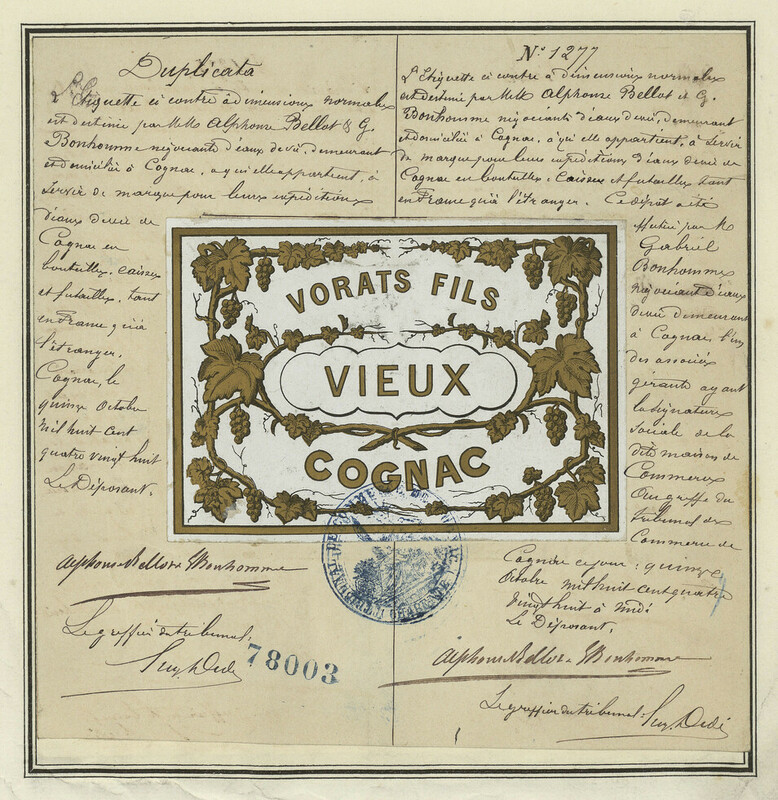 Duplicata
L'Etiquette ci contre à dimensions normales
est destinée par M.M. Alphonse Bellot & G.
Bonhomme négociants d'eaux de vie, demeurant
et domiciliés à Cognac, à qui elle appartient, à
servir de marque pour leurs expéditions
d'eaux de vie de
Cognac en
bouteilles, caisses
et futailles, tant
en France qu'à
l'étranger.
Cognac, le
quinze Octobre
mil huit cent
quatre vingt huit
Le Déposant,
Alphonse Bellot & G Bonhomme
Le greffier du tribunal,
78003
N° 1277
L'Etiquette ci contre à dimensions normales
est destinée par M.M. Alphonse Bellot et G.
Bonhomme négociants d'eaux de vie, demeurant
et domiciliés à Cognac, à qui elle appartient, à servir
de marque pour leurs expéditions d'eaux de vie de
Cognac en bouteilles, caisses et futailles tant
en France qu'à l'étranger. Ce dépôt a été
effectué par M
Gabriel
Bonhomme
négociant d'eaux
de vie demeurant
à Cognac, l'un
des associés
gérants ayant
la signature
sociale de la
dite maison de
Commerce
Au greffe du
tribunal de
Commerce de
Cognac ce jour: quinze
Octobre mil huit cent quatre
vingt huit à midi
Le Déposant,
Alphonse Bellot & G Bonhomme
Le greffier du tribunal
VORATS FILS
VIEUX
COGNAC
TRIBUNAL DE COMMERCE DE COGNAC
CHARENTE